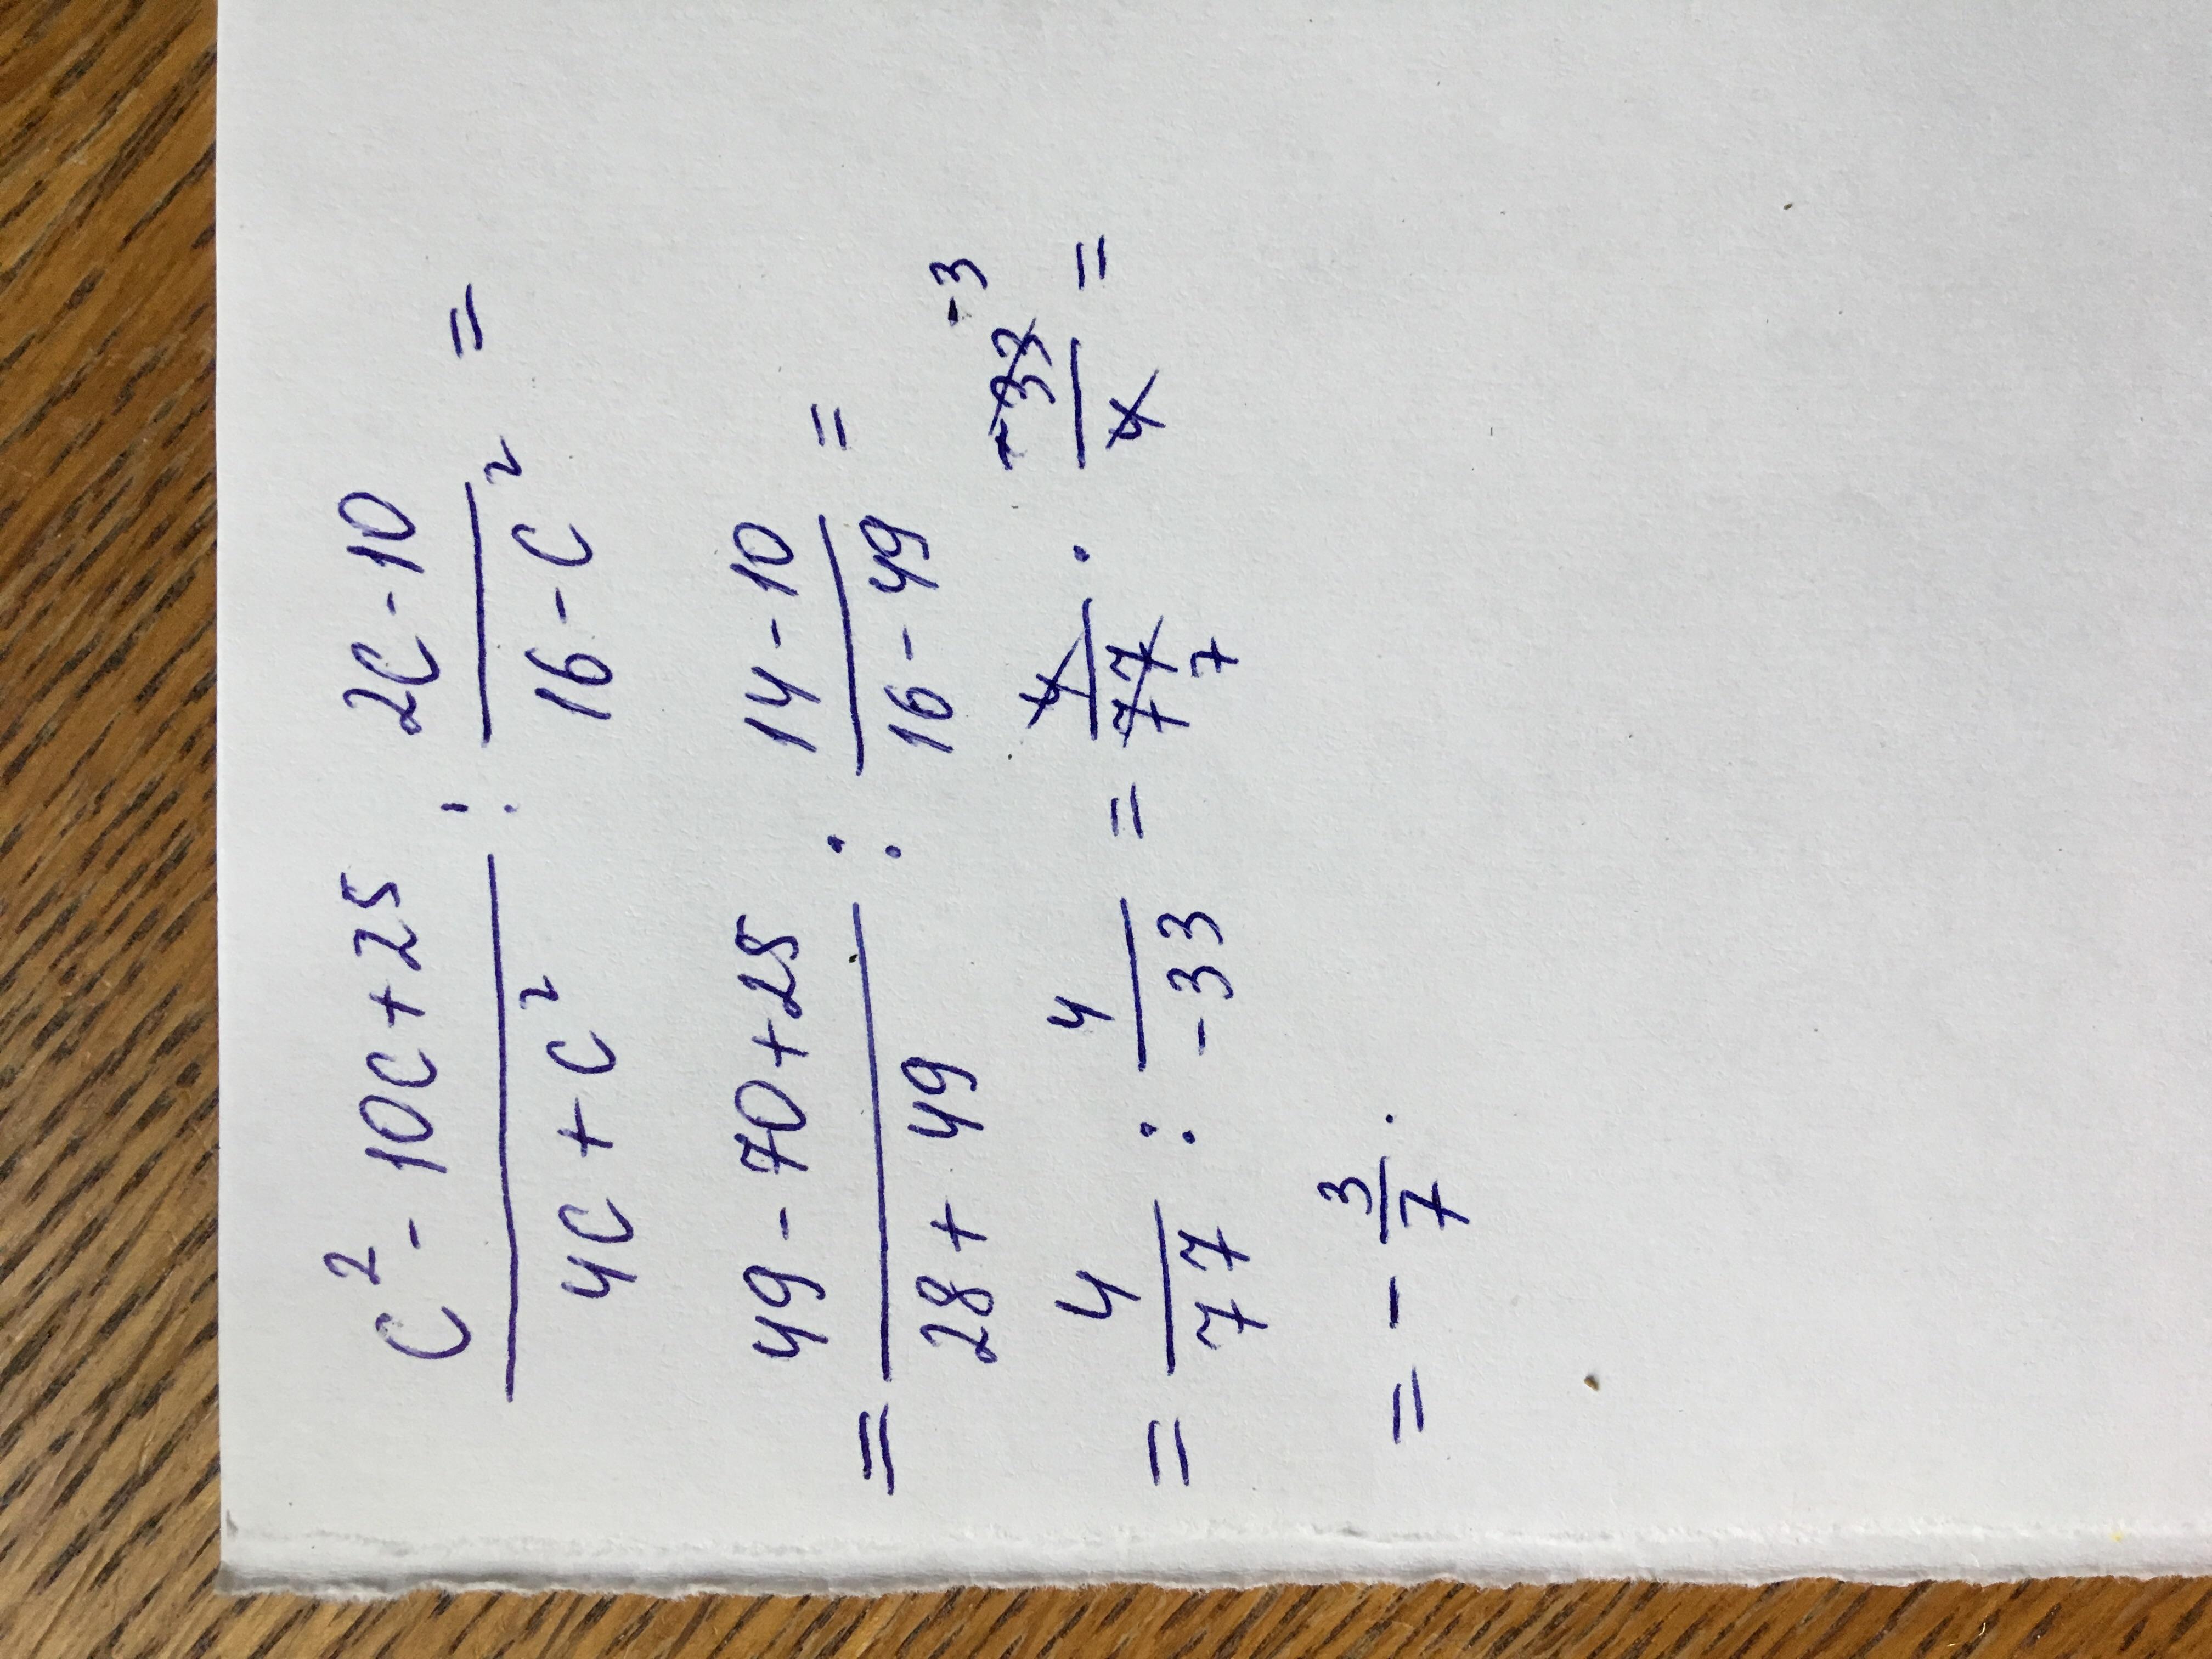 c² - 10c + 25 / 4c + c² : 2c - 10 / 16 - c² =
= 49 - 70 + 25 / 28 + 49 : 14 - 10 / 16 - 49 =
= 4 / 77 : 4 / -33 = 4 / 77 7 · -33 -3 / 4 =
= - 3 / 7 .